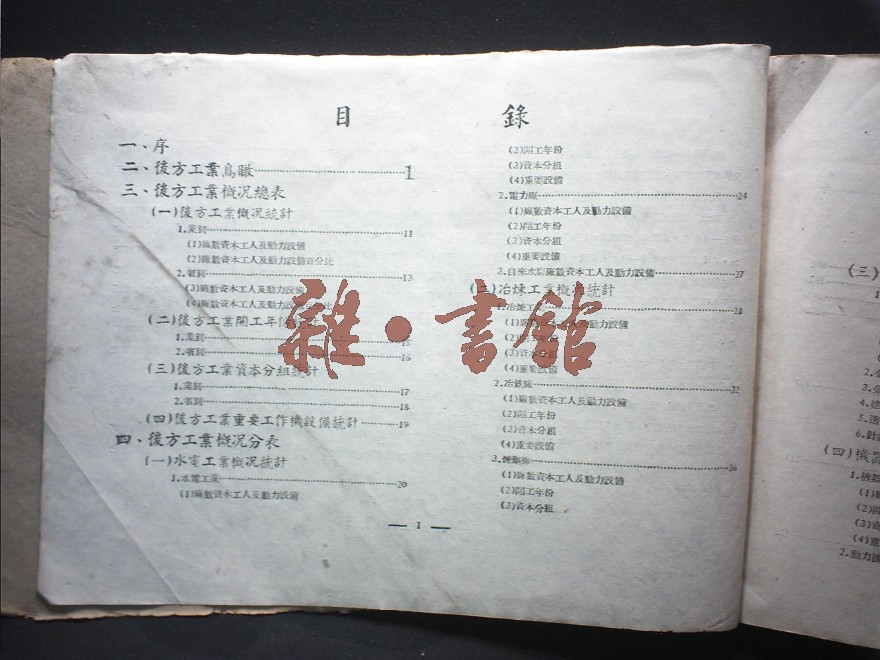 目 錄
一、序
二、後方工業鳥瞰 1
三、後方工業概況總表
(一)後方工業概況統計
1.業別 11
(1)廠數資本工人及動力設備
(2)廠數資本工人及動力設備百分比
2.省別 13
(3)廠數資本工人及動力設備
(4)廠數資本工人及動力設備 比
(二)後方工業開工年
1.業別 15
2.省別 16
(三)後方工業資本分組統計
1.業別 17
2.省別 18
(四)後方工業重要工作機設備統計 19
四、後方工業概況分表
(一)水電工業概況統計
1.水電工業 20
(1)廠數資本工人及動力設備
— 1 —
(2)開工年份
(3)資本分組
(4)重要設備
2.電力廠 24
(1)廠數資本工人及動力設備
(2)開工年份
(3)資本分組
(4)重要設備
3.自來水廠廠數資本工人及動力設備 27
(二)冶煉工業概況統計
1.冶煉工
(1)廠數資本工人及動力設備
(2)開工年份
(3)資本分組
(4)重要設備
2.冶鉄廠 32
(1)廠數資本工人及動力設備
(2)開工年份
(3)資本分組
(4)重要設備
3.煉鋼廠 36
(1)廠數資本工人及動力設備
(2)開工年份
(3)資本分組
雜·書館
(三)
1
2.金
3.
4.
5.
6.針
(四)機器
1.機
(1)廠
(2)開
(3)資
(4)重
2.動力